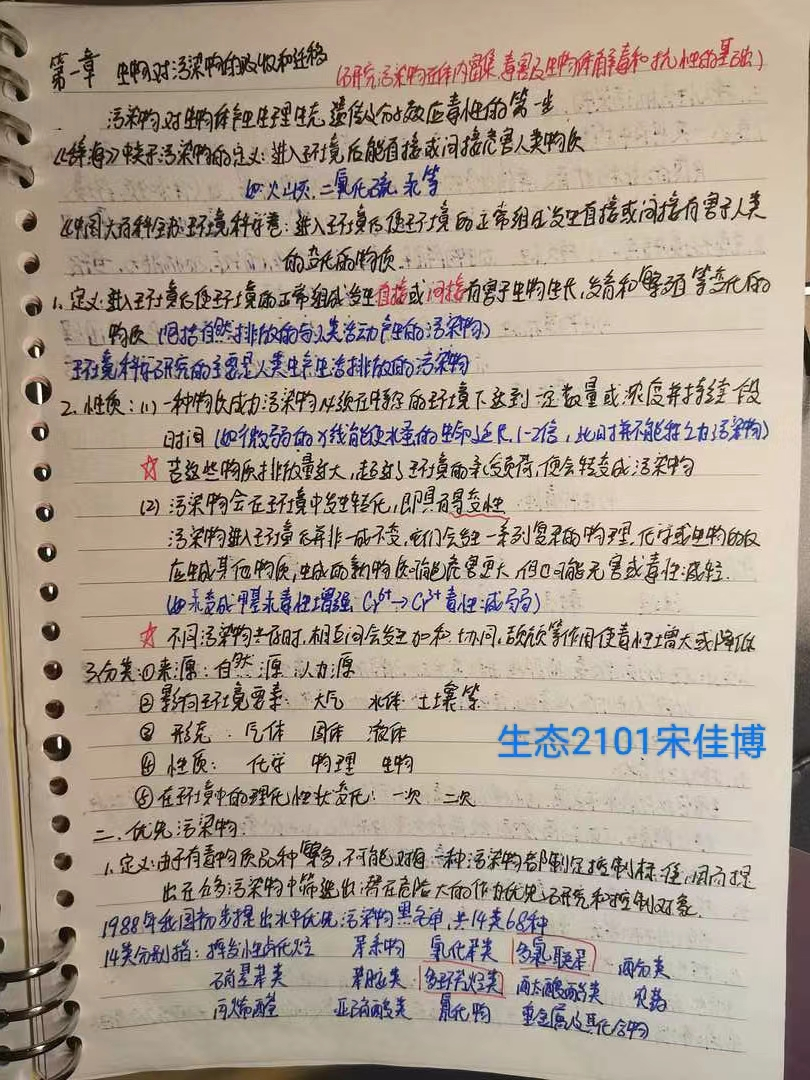 第一章 生物对污染物的吸收和迁移 (研究污染物在体内富集 毒害及生物体解毒和抗性的基础)
污染物对生物体产生生理生态,遗传及分子效应毒性的第一步
《辞海》中关于污染物的定义:进入环境后能直接或间接危害人类物质
如:火山灰.二氧化硫.汞等
《中国大百科全书·环境科学卷:进入环境后使环境的正常组成发生直接或间接有害于人类
的变化的物质.
1.定义:进入环境后使环境的正常组成发生直接或间接有害于生物生长,发育和繁殖等变化的
物质(包括自然排放的与人类活动产生的污染物)
环境科学研究的主要是人类生产生活排放的污染物
2.性质:(1)一种物质成为污染物必须在特定的环境下达到一定数量或浓度并持续一段
时间(如:微弱的X线能使水蚤的生命延长1-2倍,此时并不能称之为污染物)
☆ 若这些物质排放量增大,超过了环境的承受负荷,便会转变成污染物
(2)污染物会在环境中发生转化,即具有易变性
污染物进入环境后并非一成不变,它们会发生一系列复杂的物理,化学或生物的反
应生成其他物质,生成的新物质可能危害更大,但也可能无害或毒性减轻.
(如:汞变成甲基汞毒性增强 Cr⁶⁺→Cr³⁺毒性减弱)
☆ 不同污染物共存时,相互间会发生加和 协同,颉颃等作用使毒性增大或降低
3.分类:①来源:自然源 人为源
②影响环境要素: 大气 水体 土壤等
③ 形态: 气体 固体 液体
④ 性质: 化学 物理 生物
生态2101宋佳博
⑤在环境中的理化性状变化: 一次 二次
二.优先污染物:
1.定义:由于有毒物质品种繁多,不可能对每一种污染物都制定控制标准,因而提
出在众多污染物中筛选出潜在危险大的作为优先研究和控制对象.
1988年我国初步提出水中优先污染物黑名单,共14类68种
14类分别指:挥发性卤代烃 苯系物 氯代苯类 多氯联苯 酚类
硝基苯类 苯胺类 多环芳烃类 酞酸酯类 农药
丙烯腈 亚硝胺类 氰化物 重金属及其化合物